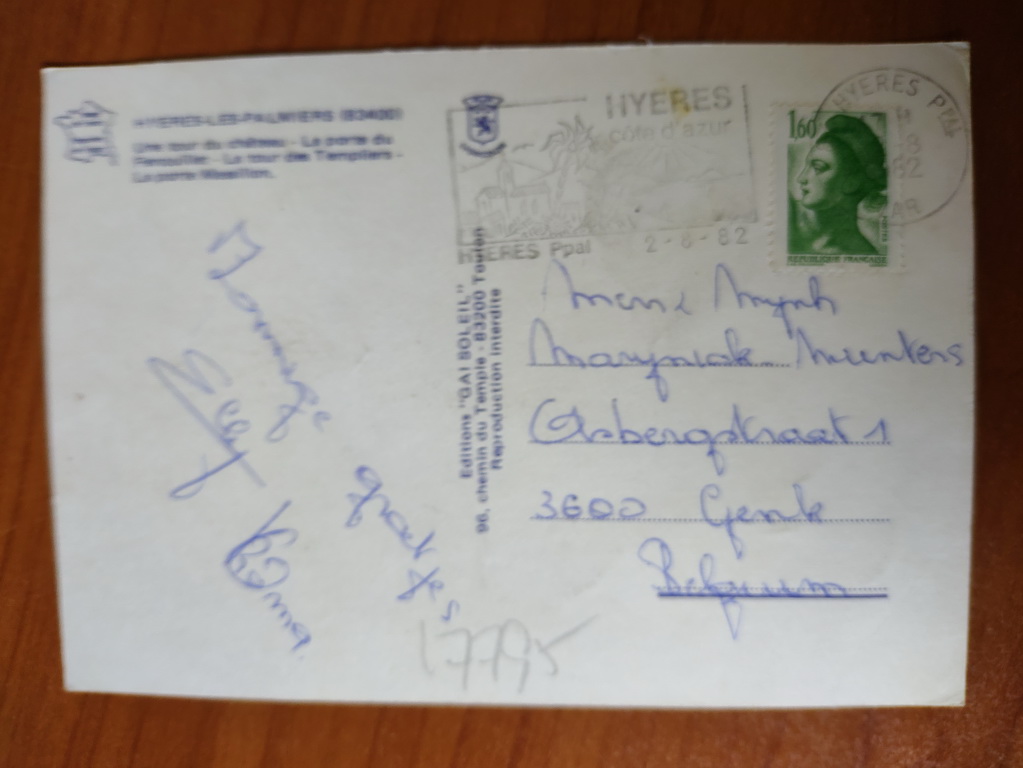 HYERES-LES-PALMIERS (83400)
Une tour du château - La porte du
Fenouillet - La tour des Templiers -
La porte Massillon.
HYERES
côte d'azur
HYERES Ppal 2-8-82
HYERES PPAL
1,60
REPUBLIQUE FRANÇAISE
Editions "GAI SOLEIL"
96, chemin du Temple - 83200 Toulon
Reproduction Interdite
groetjes
Elly
Maryniak Munters
1
3600 Genk
Belgium
17795